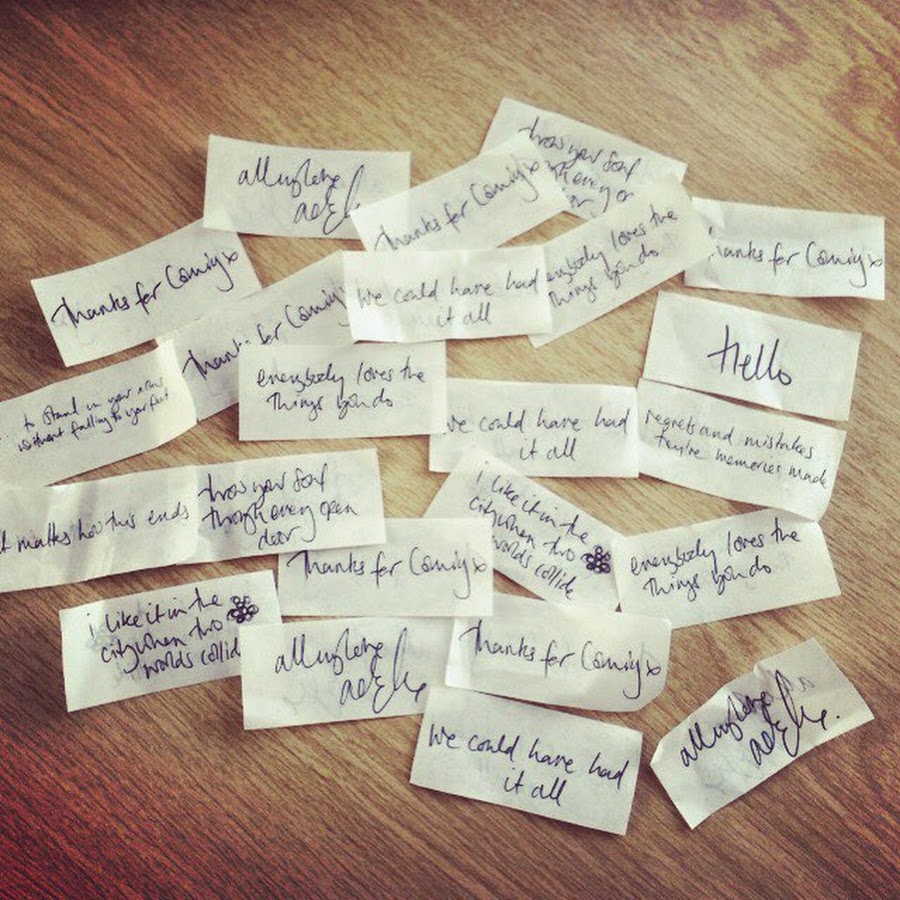 throw your soul
through every op
all my love
adele
thanks for coming x
everybody loves the
things you do
thanks for coming x
thanks for coming x
we could have had
it all
thanks for coming
Hello
everybody loves the
things you do
to stand in your arms
without falling to your feet
we could have had
it all
regrets and mistakes
they're memories made
it matters how this ends
throw your soul
through every open
door
i like it in the
city when two
worlds collide
everybody loves the
things you do
thanks for coming x
i like it in the
city when two
worlds collid
all my love
adele
thanks for coming x
all my love
adele.
we could have had
it all